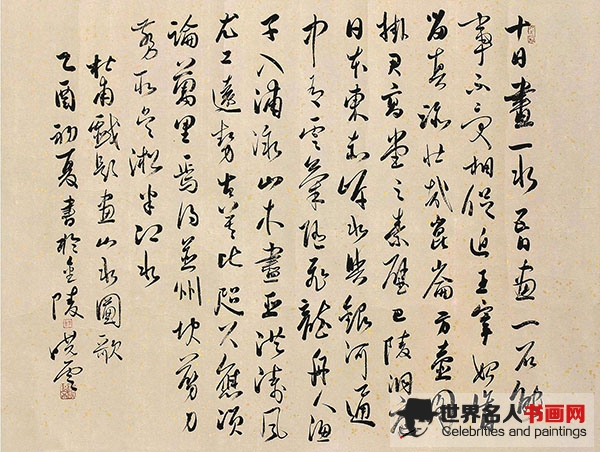 十日畫一水五日畫一石能
事不受相促迫王宰始肯
留真跡壯哉崑崙方壺圖
掛君高堂之素壁巴陵洞庭
日本東赤岸水與銀河通
中有雲氣隨飛龍舟人漁
子入浦溆山木盡亞洪濤風
尤工遠勢古莫比咫尺應須
論萬里焉得並州快剪刀
剪取吳淞半江水
杜甫戲題画山水圖歌
乙酉初夏書於金陵
世界名人书画网
Celebrities and paintings